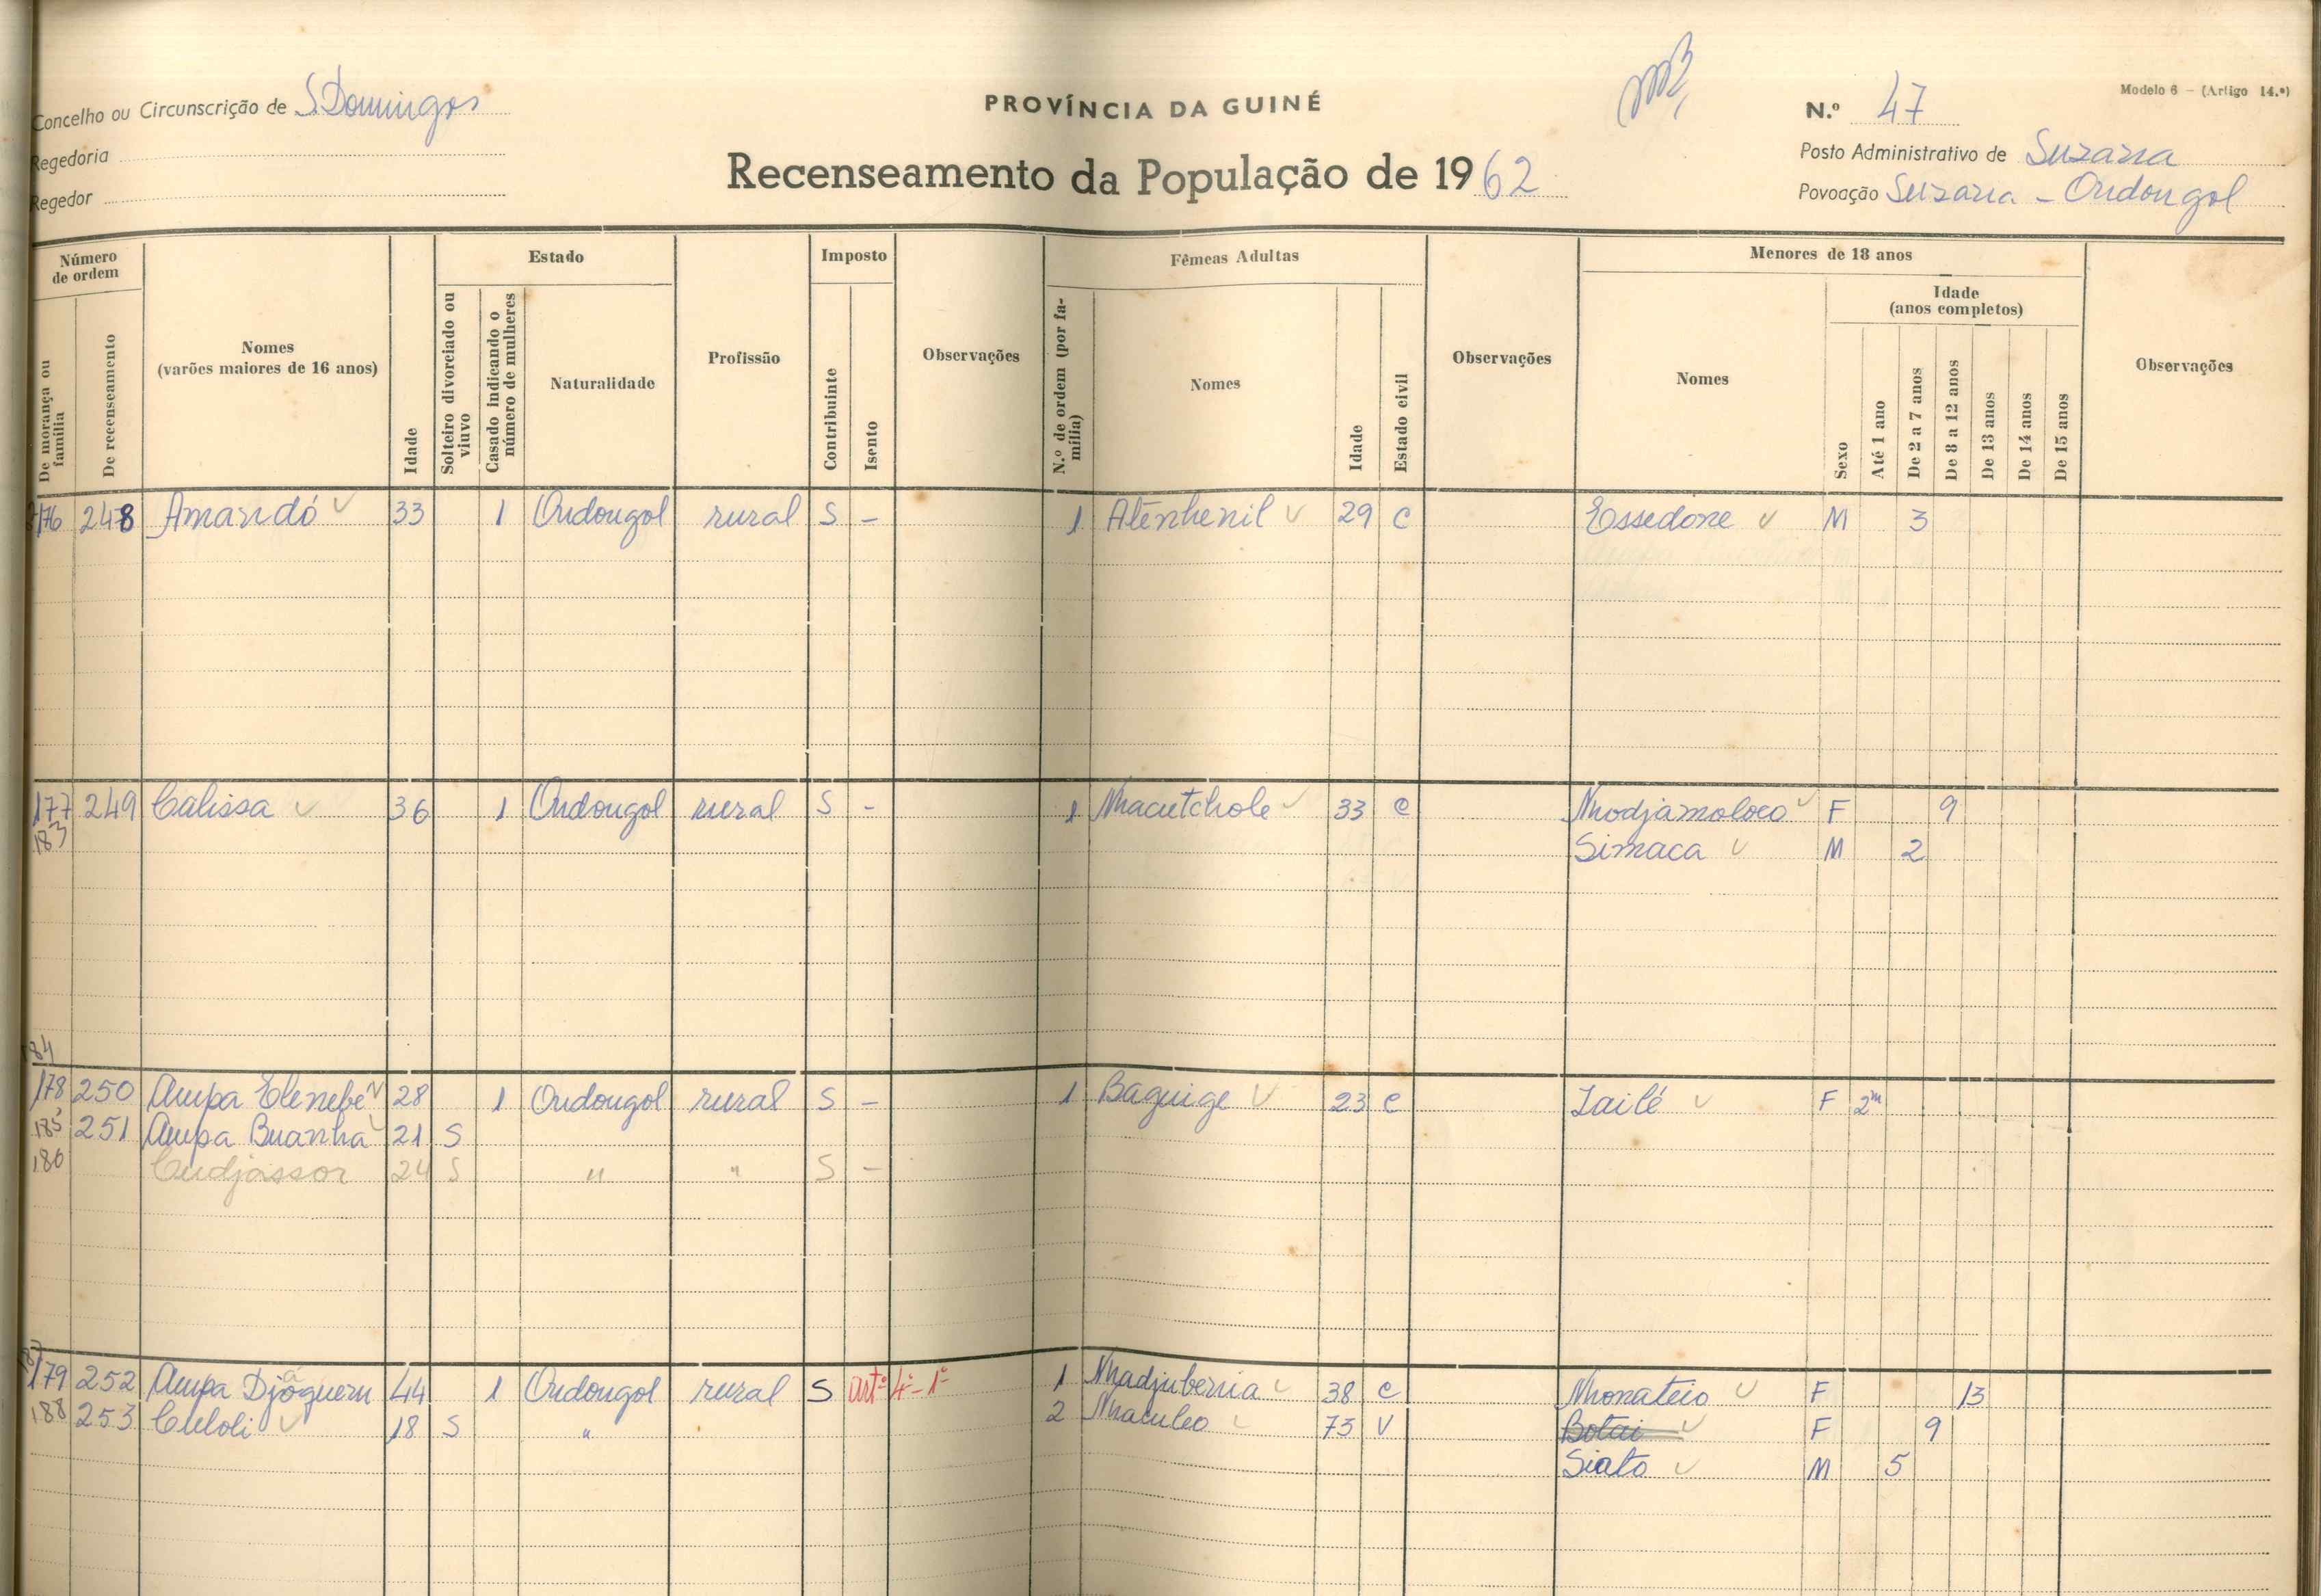 Modelo 6 - (Artigo 14.º)
Concelho ou Circunscrição de S. Domingos
PROVÍNCIA DA GUINÉ
N.º 47
Regedoria
Recenseamento da População de 1962
Posto Administrativo de Suzana
Regedor
Povoação Suzana - Ondongol
Número de ordem
De morança ou família
De recenseamento
Nomes
(varões maiores de 16 anos)
Idade
Estado
Solteiro divorciado ou viuvo
Casado indicando o número de mulheres
Naturalidade
Profissão
Imposto
Contribuinte
Isento
Observações
N.º de ordem (por família)
Fêmeas Adultas
Nomes
Idade
Estado civil
Observações
Menores de 18 anos
Nomes
Sexo
Idade
(anos completos)
Até 1 ano
De 2 a 7 anos
De 8 a 12 anos
De 13 anos
De 14 anos
De 15 anos
Observações
176 248 Amandó 33 1 Ondongol rural S - 1 Atenhenil 29 C Essedone M 3
177 249 Calissa 36 1 Ondongol rural S - 1 Nhacutchole 33 C Nhodjamoloco F 9
183 Simaca M 2
184
178 250 Ampa Elenebe 28 1 Ondongol rural S - 1 Baguige 23 C Lailé F 2m
185 251 Ampa Buanha 21 S
186 Cudjassor 24 S " " S -
179 252 Ampa Djoguem 44 1 Ondongol rural S artº 4º - 1º 1 Nhadjubenia 38 C Nhonateio F 13
188 253 Culoli 18 S " 2 Nhaculeo 73 V Botai F 9
Siato M 5